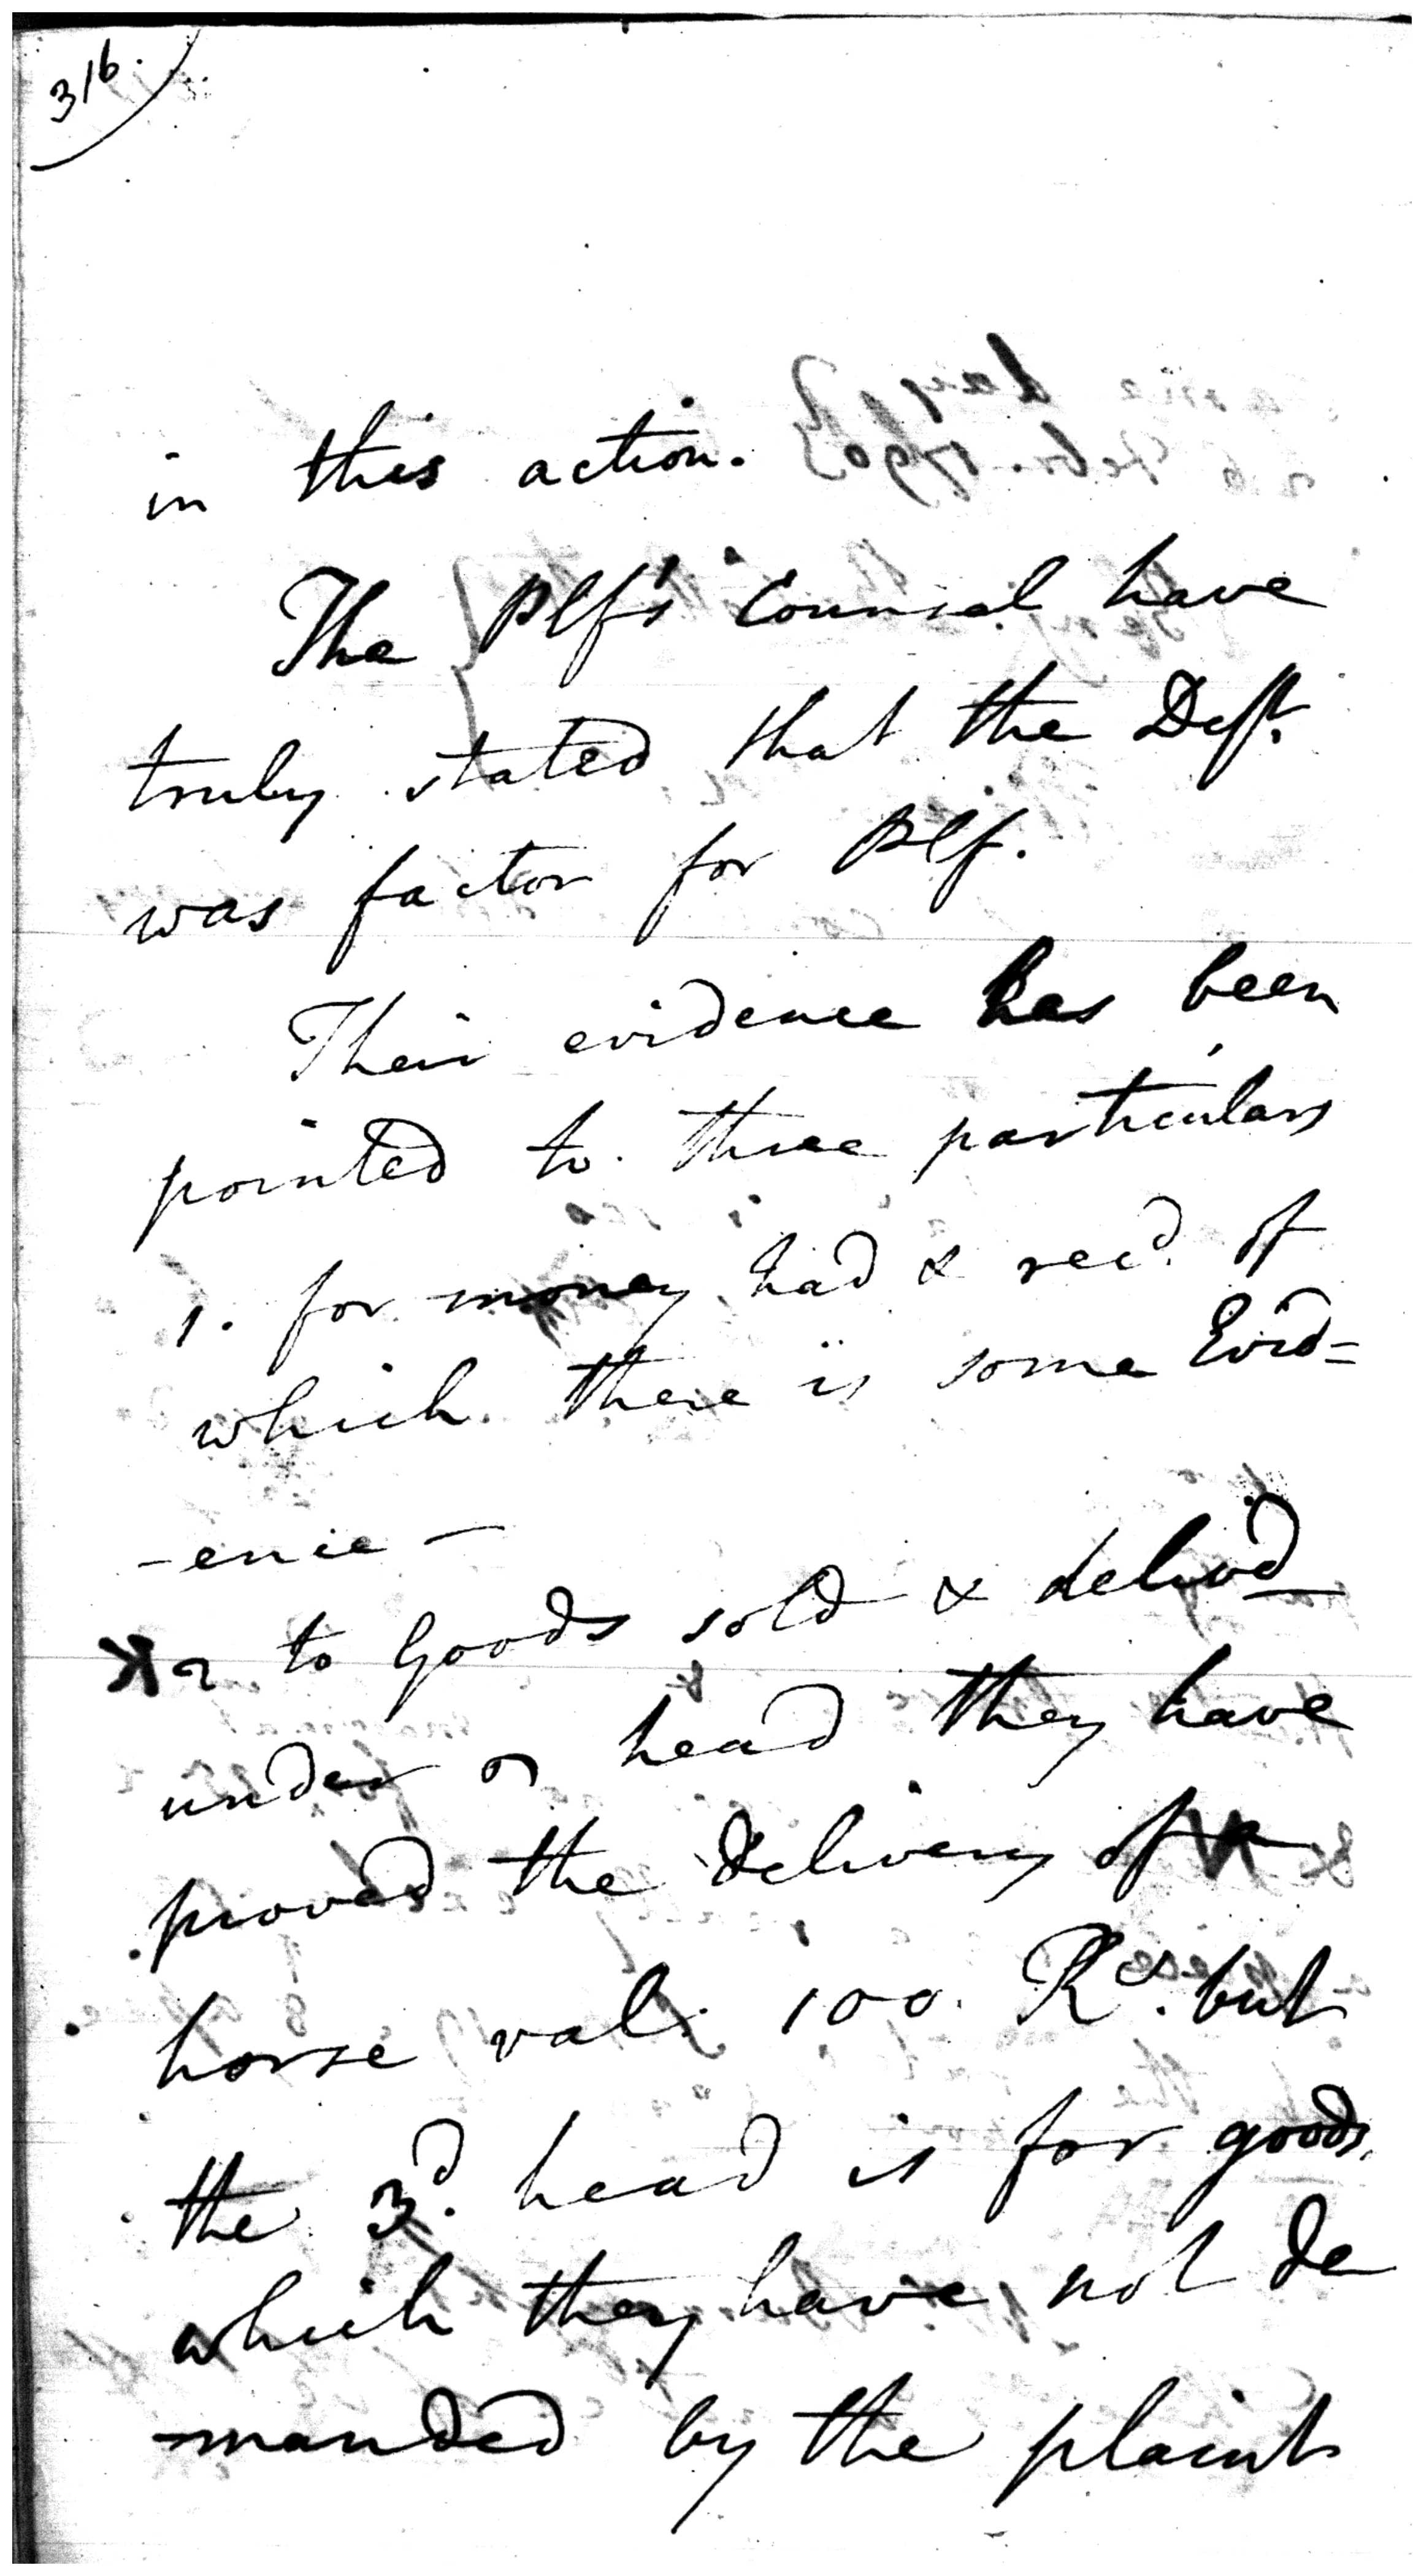 316.
in this action.
The Plf's Counsel have
truly stated that the Deft.
was factor for Plf.
Their evidence has been
pointed to three particulars
1. for money had & recd. of
which there is some Evid=
-ence -
2 to Goods sold & delivd
under head they have
proved the delivery of a
horse val. 100. Rs. but
the 3d. head is for goods
which they have not de
-manded by the plaint